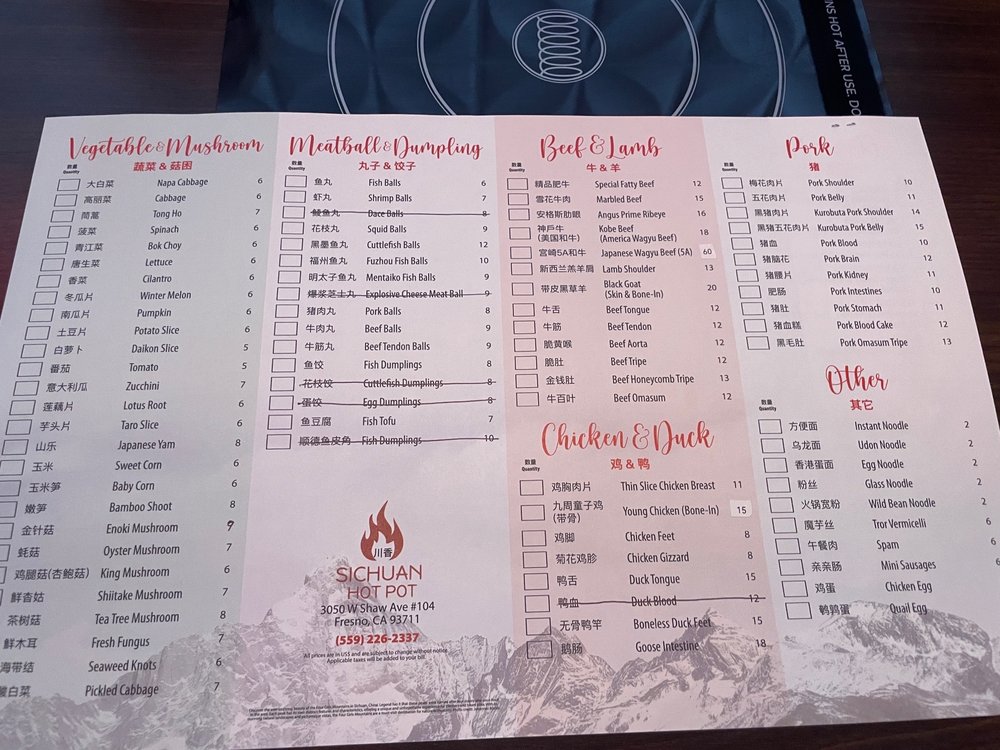 NS HOT AFTER USE. DO
Vegetable & Mushroom
蔬菜 & 菇困
数量
Quantity
大白菜 Napa Cabbage 6
高丽菜 Cabbage 6
茼蒿 Tong Ho 7
菠菜 Spinach 6
青江菜 Bok Choy 6
唐生菜 Lettuce 6
香菜 Cilantro 6
冬瓜片 Winter Melon 6
南瓜片 Pumpkin 6
土豆片 Potato Slice 6
白萝卜 Daikon Slice 5
番茄 Tomato 5
意大利瓜 Zucchini 7
莲藕片 Lotus Root 6
芋头片 Taro Slice 6
山乐 Japanese Yam 8
玉米 Sweet Corn 6
玉米笋 Baby Corn 6
嫩笋 Bamboo Shoot 8
金针菇 Enoki Mushroom 9
蚝菇 Oyster Mushroom 7
鸡腿菇(杏鲍菇) King Mushroom 6
鲜香菇 Shiitake Mushroom 7
茶树菇 Tea Tree Mushroom 8
鲜木耳 Fresh Fungus 7
海带结 Seaweed Knots 6
酸白菜 Pickled Cabbage 7
Meatball & Dumpling
丸子 & 饺子
数量
Quantity
鱼丸 Fish Balls 6
虾丸 Shrimp Balls 7
鲮鱼丸 Dace Balls 8
花枝丸 Squid Balls 9
黑墨鱼丸 Cuttlefish Balls 12
福州鱼丸 Fuzhou Fish Balls 10
明太子鱼丸 Mentaiko Fish Balls 9
爆浆芝士丸 Explosive Cheese Meat Ball 9
猪肉丸 Pork Balls 8
牛肉丸 Beef Balls 9
牛筋丸 Beef Tendon Balls 9
鱼饺 Fish Dumplings 8
花枝饺 Cuttlefish Dumplings 8
蛋饺 Egg Dumplings 8
鱼豆腐 Fish Tofu 7
顺德鱼皮角 Fish Dumplings 10
川香
SICHUAN
HOT POT
3050 W Shaw Ave #104
Fresno, CA 93711
(559) 226-2337
All prices are in US$ and are subject to change without notice
Applicable taxes will be added to your bill.
Beef & Lamb
牛 & 羊
数量
Quantity
精品肥牛 Special Fatty Beef 12
雪花牛肉 Marbled Beef 15
安格斯肋眼 Angus Prime Ribeye 16
神戶牛 Kobe Beef 18
(美国和牛) (America Wagyu Beef)
宫崎5A和牛 Japanese Wagyu Beef (5A) 60
新西兰羔羊肩 Lamb Shoulder 13
带皮黑草羊 Black Goat 20
(Skin & Bone-In)
牛舌 Beef Tongue 12
牛筋 Beef Tendon 12
脆黄喉 Beef Aorta 12
脆肚 Beef Tripe 12
金钱肚 Beef Honeycomb Tripe 13
牛百叶 Beef Omasum 12
Chicken & Duck
鸡 & 鸭
数量
Quantity
鸡胸肉片 Thin Slice Chicken Breast 11
九周童子鸡 Young Chicken (Bone-In) 15
(带骨)
鸡脚 Chicken Feet 8
菊花鸡胗 Chicken Gizzard 8
鸭舌 Duck Tongue 15
鸭血 Duck Blood 12
无骨鸭竿 Boneless Duck Feet 15
鹅肠 Goose Intestine 18
Pork
猪
数量
Quantity
梅花肉片 Pork Shoulder 10
五花肉片 Pork Belly 11
黑猪肉片 Kurobuta Pork Shoulder 14
黑猪五花肉片 Kurobuta Pork Belly 15
猪血 Pork Blood 10
猪脑花 Pork Brain 12
猪腰片 Pork Kidney 11
肥肠 Pork Intestines 10
猪肚 Pork Stomach 11
猪血糕 Pork Blood Cake 12
黑毛肚 Pork Omasum Tripe 13
Other
其它
数量
Quantity
方便面 Instant Noodle 2
乌龙面 Udon Noodle 2
香港蛋面 Egg Noodle 2
粉丝 Glass Noodle 2
火锅宽粉 Wild Bean Noodle 2
魔芋丝 Tror Vermicelli 6
午餐肉 Spam 6
亲亲肠 Mini Sausages 6
鸡蛋 Chicken Egg
鹌鹑蛋 Quail Egg